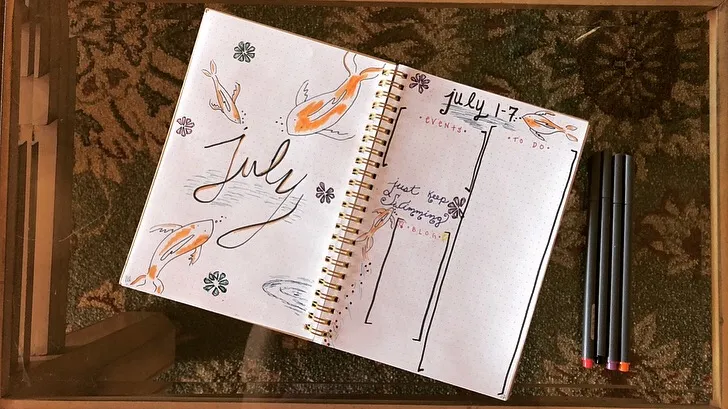 July
july 1-7
• EVENTS •
• TO DO •
just keep
Swimming
BLOG •